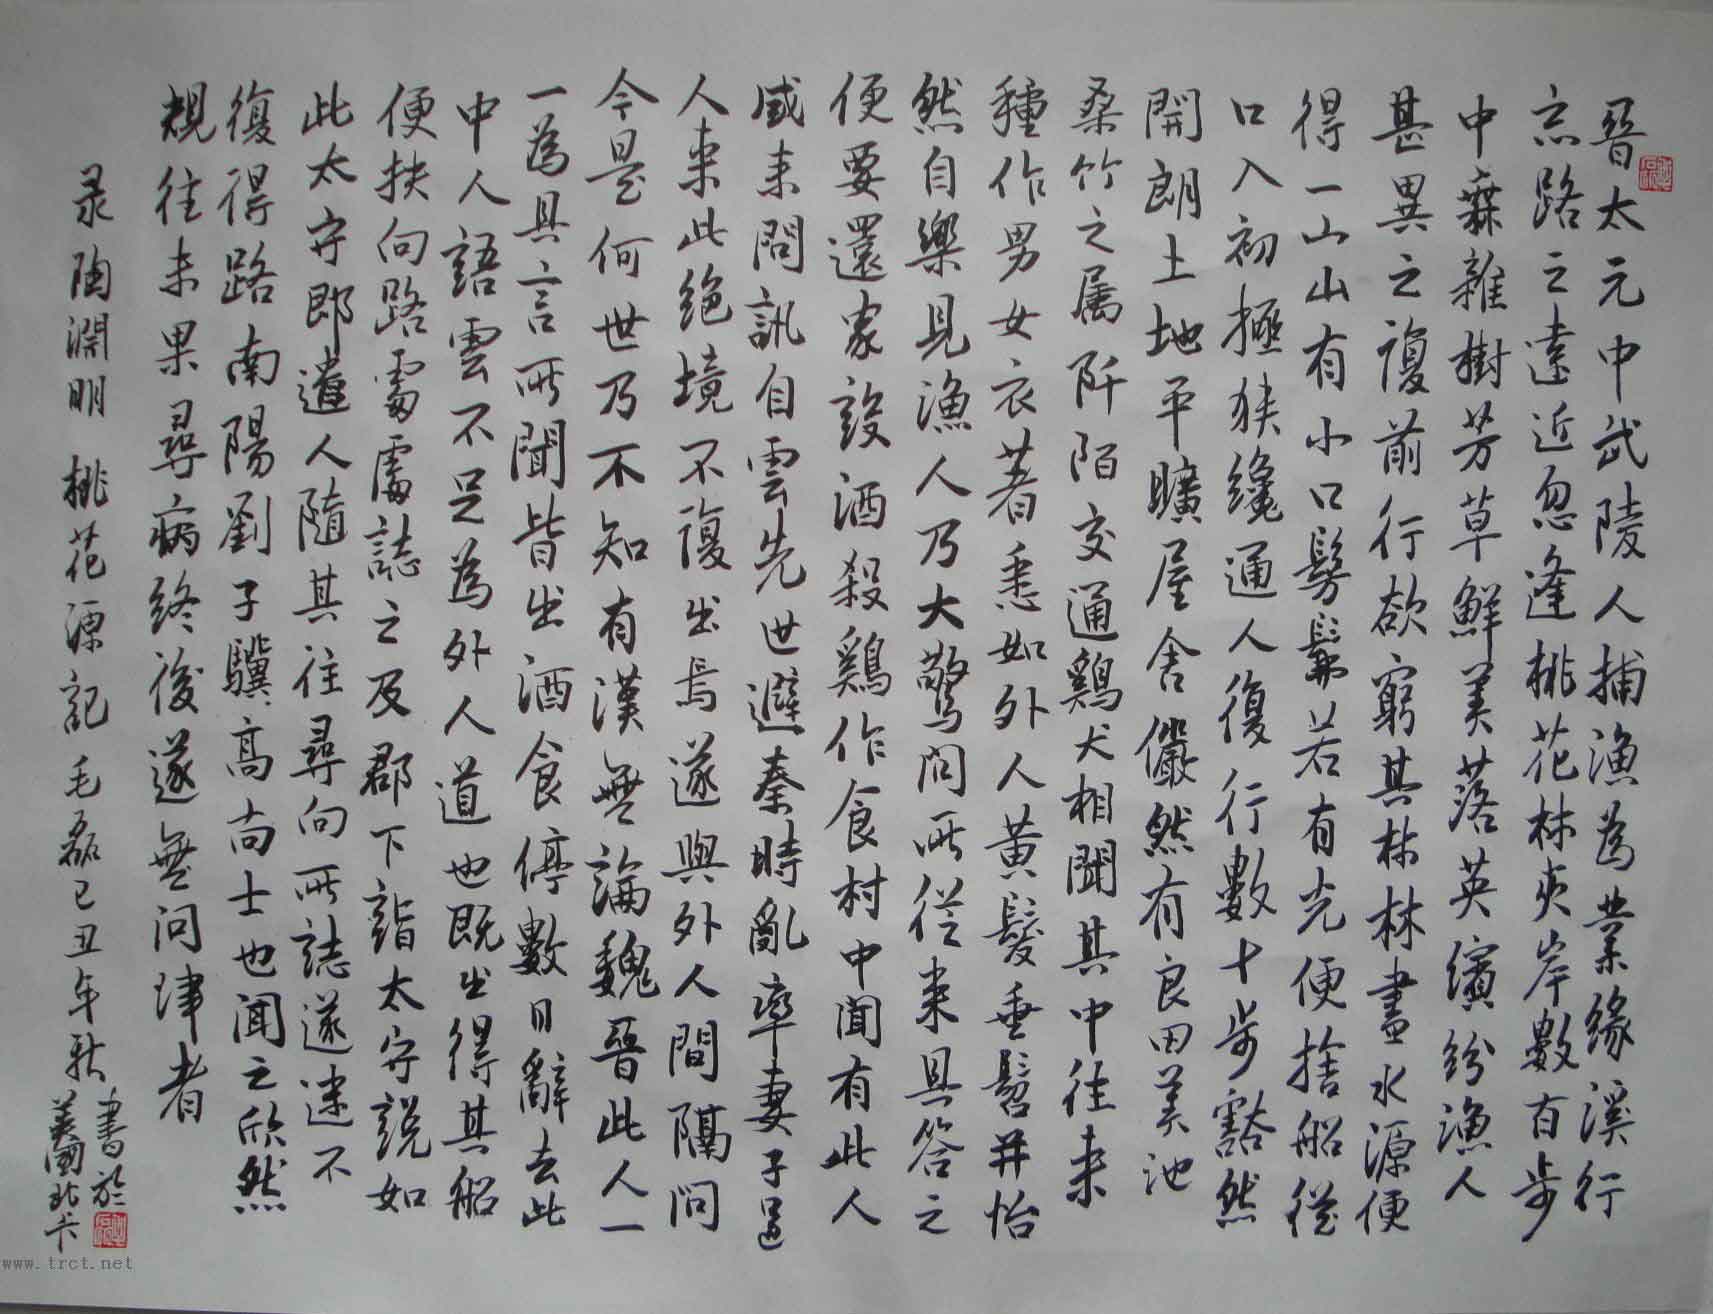 晉太元中武陵人捕漁為業緣溪行
忘路之遠近忽逢桃花林夾岸數百步
中無雜樹芳草鮮美落英繽紛漁人
甚異之復前行欲窮其林林盡水源便
得一山山有小口髣髴若有光便捨船從
口入初極狹纔通人復行數十步豁然
開朗土地平曠屋舍儼然有良田美池
桑竹之属阡陌交通鷄犬相聞其中往来
種作男女衣著悉如外人黃髮垂髫并怡
然自樂見漁人乃大驚问所從来具答之
便要還家設酒殺鷄作食村中聞有此人
咸来問訊自雲先世避秦時亂率妻子邑
人来此絶境不復出焉遂與外人間隔问
今是何世乃不知有漢無論魏晉此人一
一為具言所聞皆出酒食停數日辭去此
中人語雲不足為外人道也既出得其船
便扶向路處處誌之及郡下詣太守說如
此太守即遣人隨其往尋向所誌遂迷不
復得路南陽劉子驥高尚士也聞之欣然
規往未果尋病終後遂無问津者
录陶淵明桃花源記毛磊己丑年秋
書於
美國北卡
www.trct.net